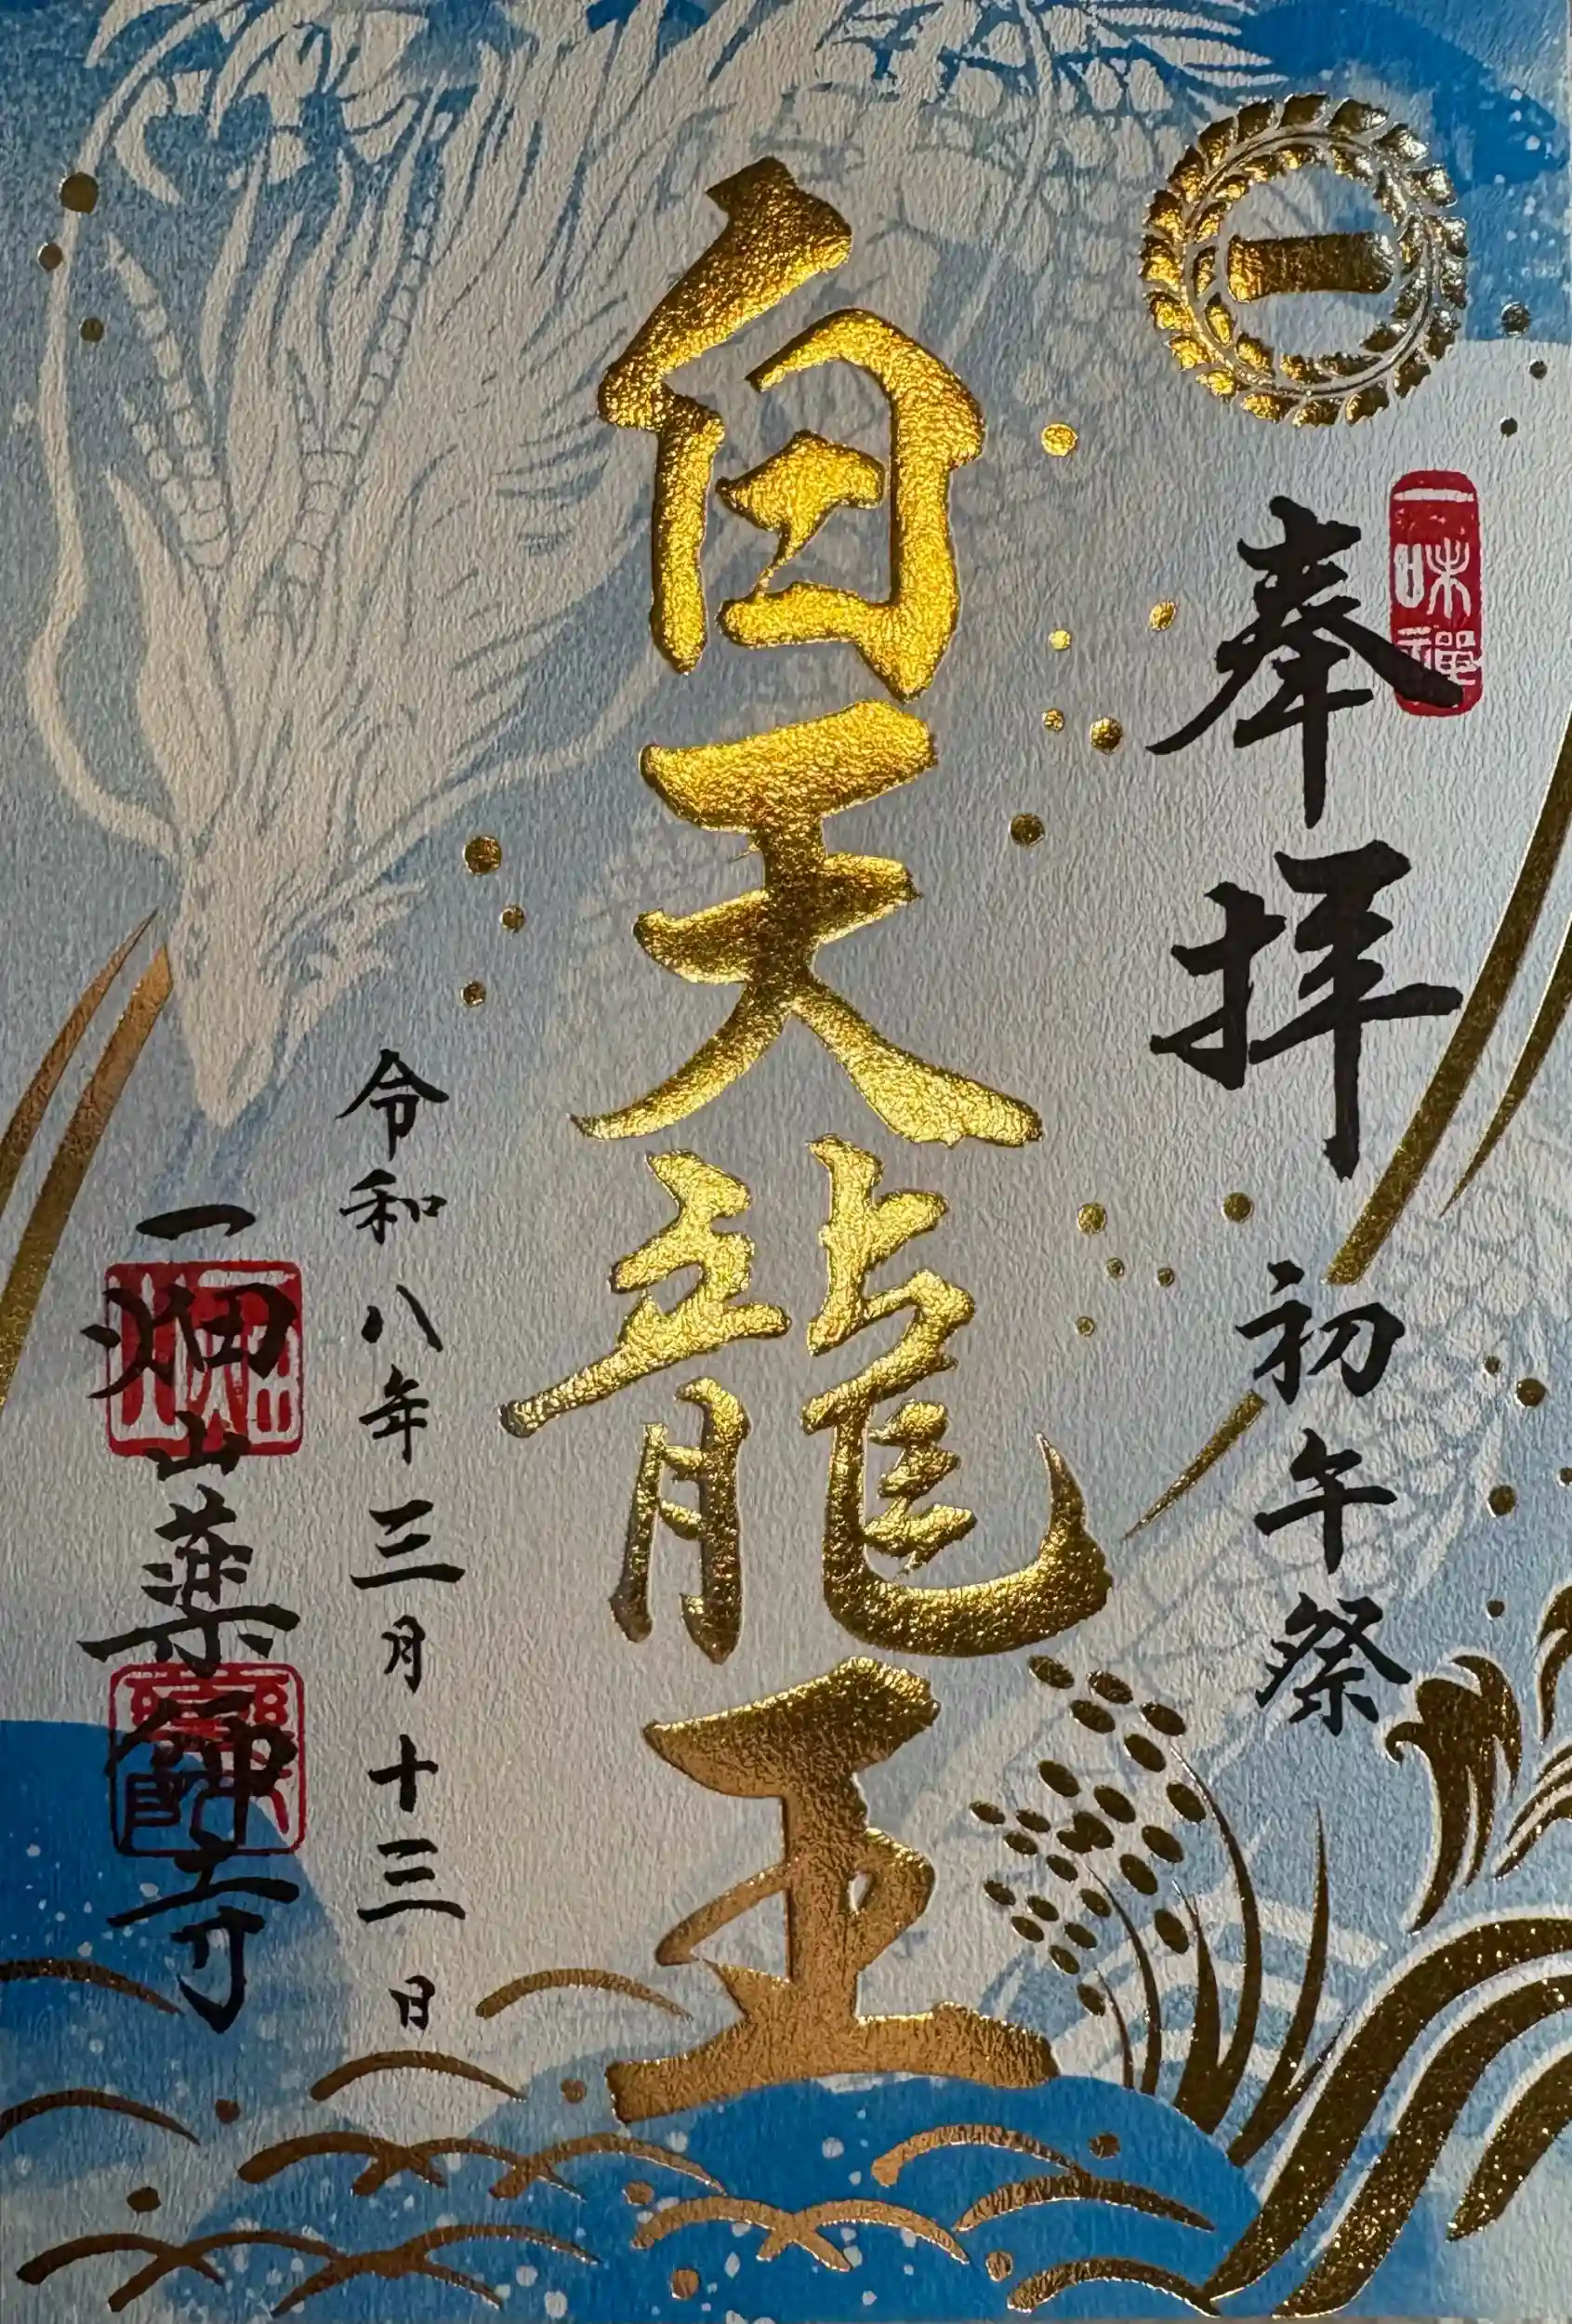 一
一味禅
奉拝 初午祭
白天龍王
令和八年三月十三日
一畑山薬師寺